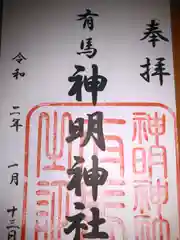 奉拝
有馬
神明神社
令和二年一月十三日
神明神社